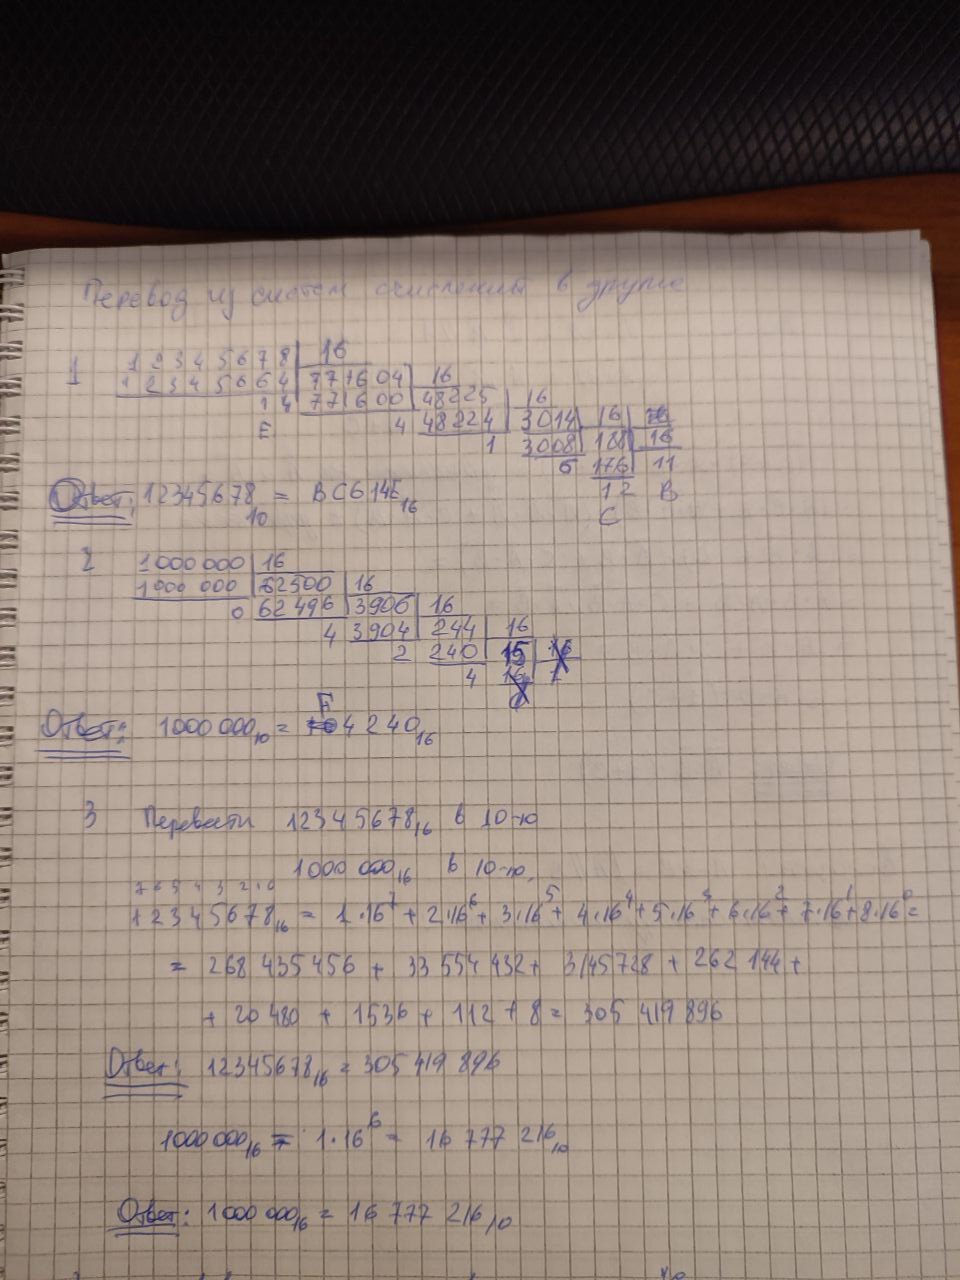 Перевод из систем счисления в другие
1 12345678 | 16
12345664 | 771604 | 16
14 771600 | 48225 | 16
E 4 48224 | 3014 | 16
1 3008 | 188 | 16
6 176 | 11
12 B
C
Ответ: 12345678₁₀ = BC614E₁₆
2 1000 000 | 16
1000 000 | 62500 | 16
0 62496 | 3906 | 16
4 3904 | 244 | 16
2 240 | 15
4
Ответ: 1000 000₁₀ = F4240₁₆
3 Перевести 12345678₁₆ в 10-ю
1000 000₁₆ в 10-ю.
7 6 5 4 3 2 1 0
12345678₁₆ = 1·16⁷ + 2·16⁶ + 3·16⁵ + 4·16⁴ + 5·16³ + 6·16² + 7·16¹ + 8·16⁰ =
= 268 435456 + 33 554 432 + 3145728 + 262 144 +
+ 20 480 + 1536 + 112 + 8 = 305 419 896
Ответ: 12345678₁₆ = 305 419 896
1000 000₁₆ = 1·16⁶ = 16 777 216₁₀
Ответ: 1000 000₁₆ = 16 777 216₁₀